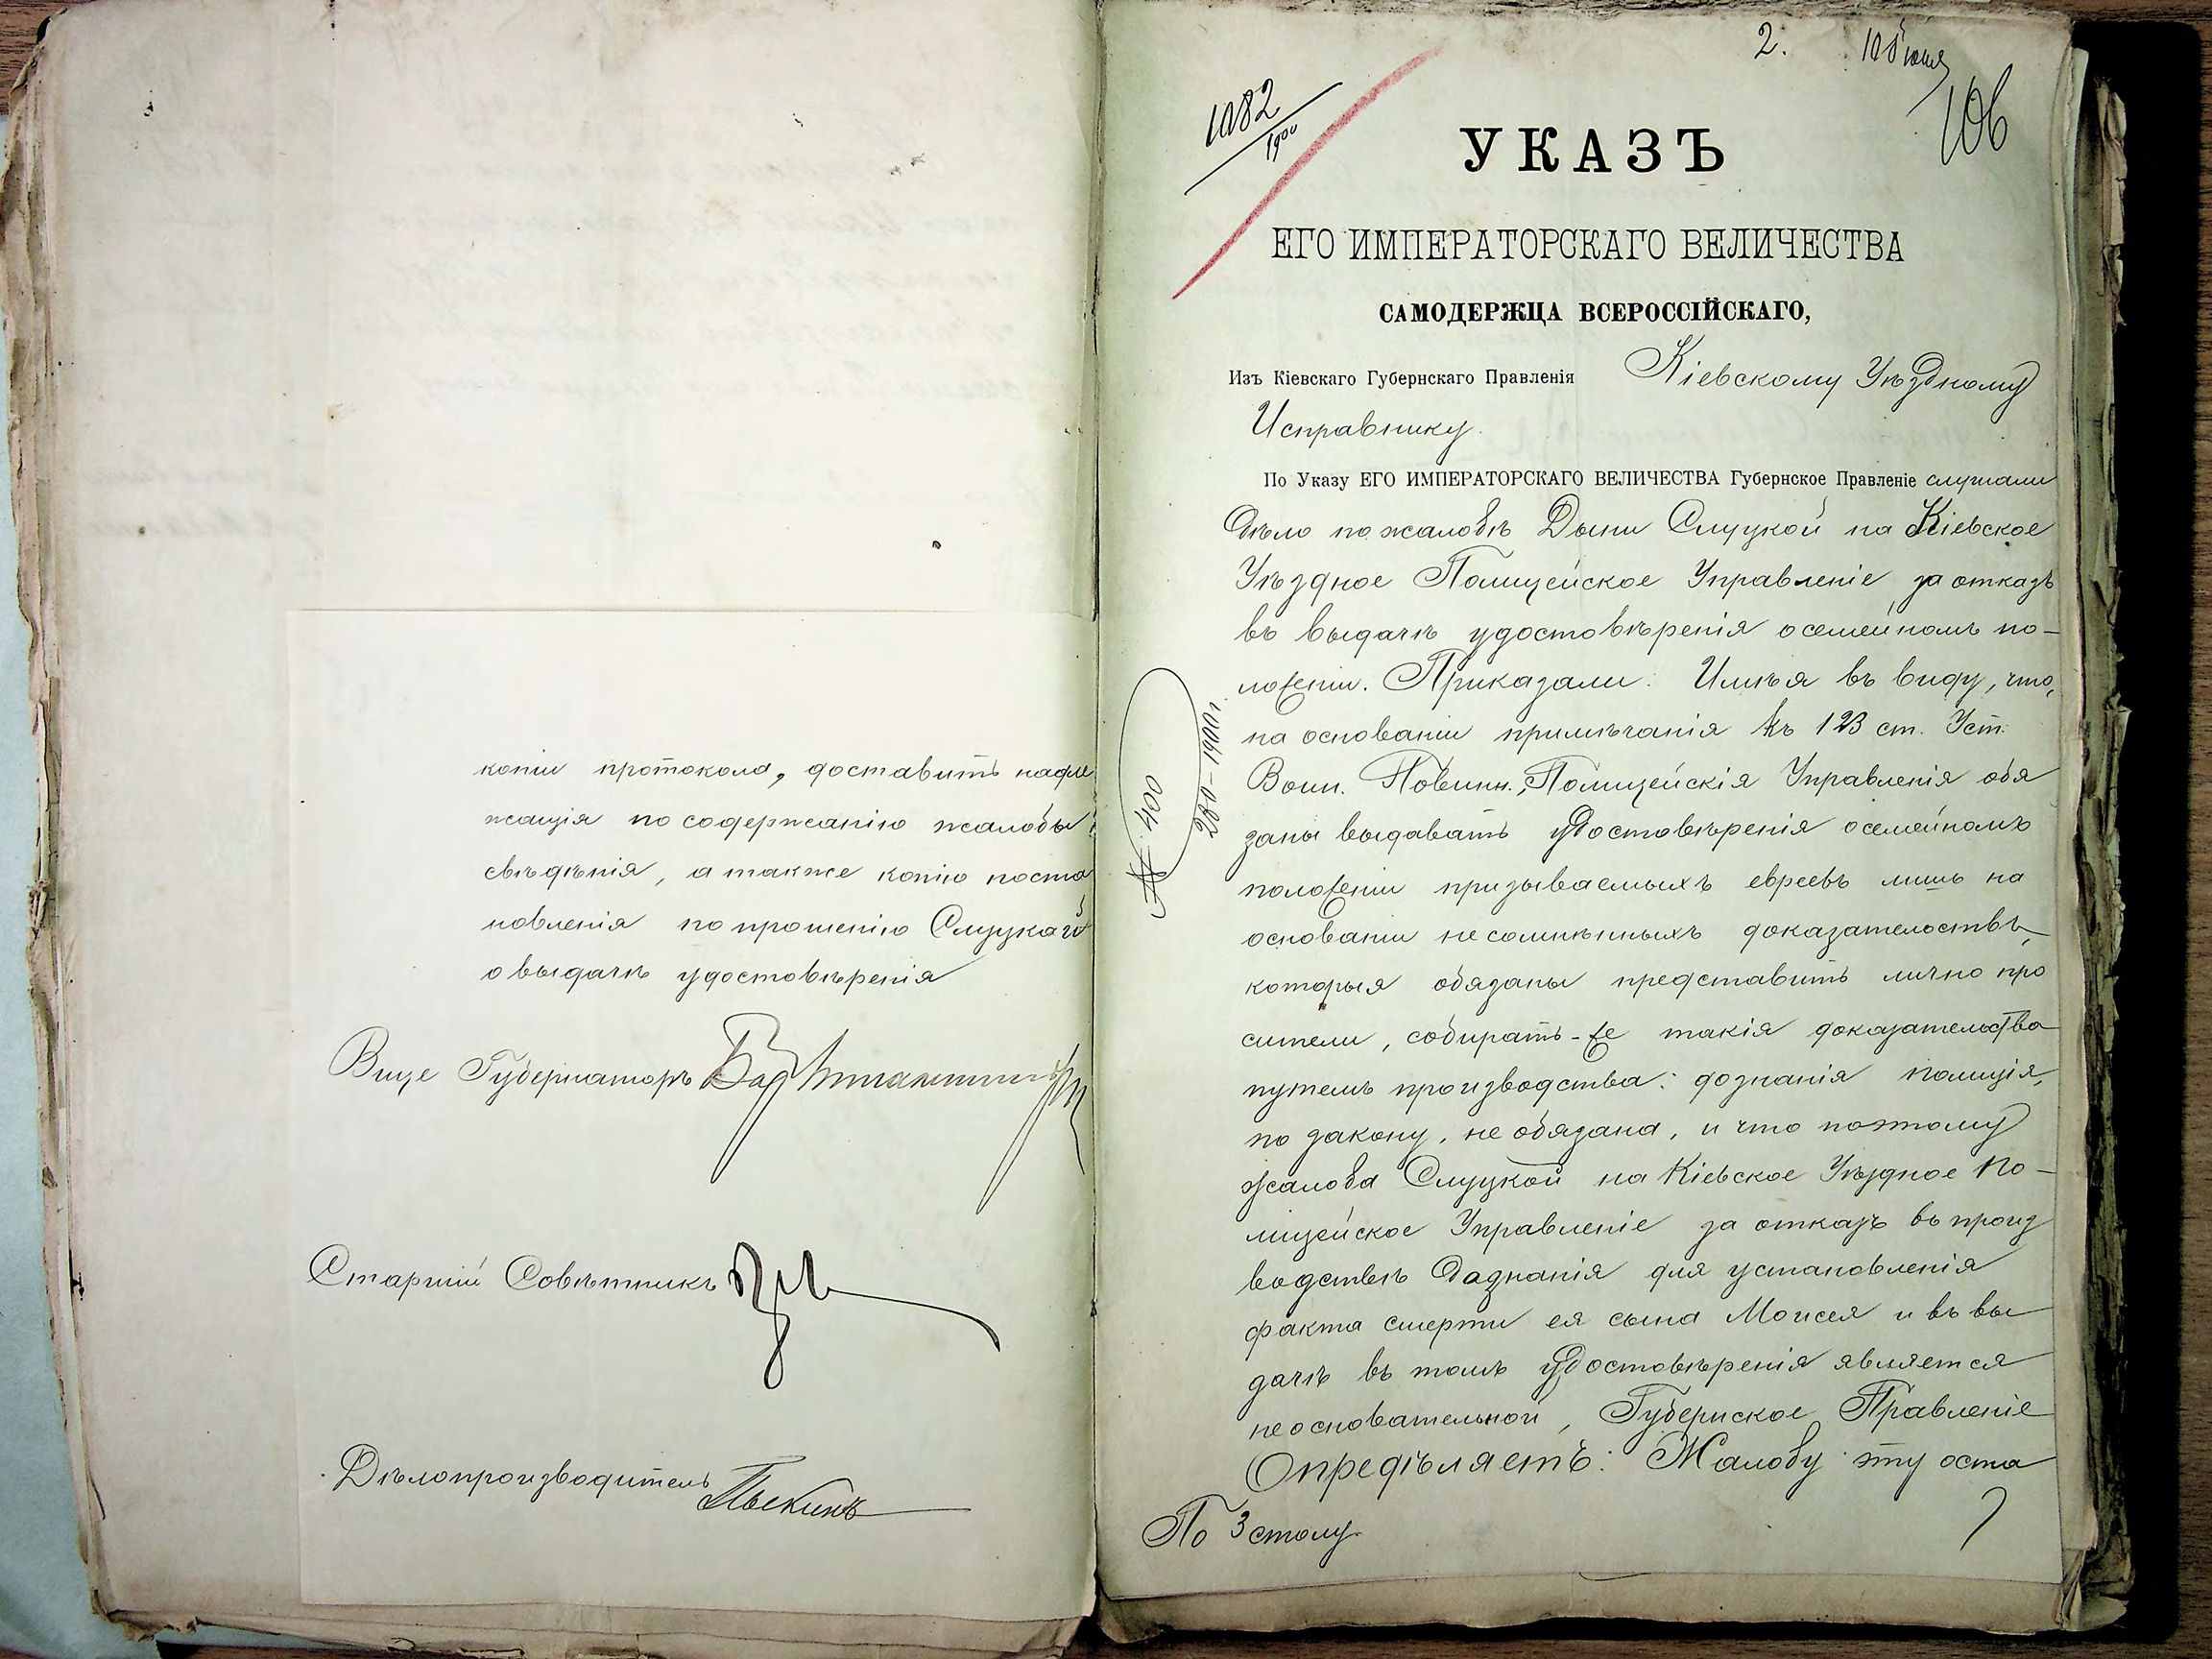 копіи протокола, доставить надле
жащія по содержанію жалобы
свѣдѣнія, а также копію поста
новленія по прошенію Слуцкой
о выдачѣ удостовѣренія
Вице Губернаторъ
Старшій Совѣтникъ
Дѣлопроизводитель
2.
106
1082
1900
УКАЗЪ
ЕГО ИМПЕРАТОРСКАГО ВЕЛИЧЕСТВА
САМОДЕРЖЦА ВСЕРОССІЙСКАГО,
Изъ Кіевскаго Губернскаго Правленія Кіевскому Уѣздному
Исправнику.
По Указу ЕГО ИМПЕРАТОРСКАГО ВЕЛИЧЕСТВА Губернское Правленіе слушали
дѣло по жалобѣ Дыни Слуцкой на Кіевское
Уѣздное Полицейское Управленіе за отказъ
въ выдачѣ удостовѣренія о семейномъ по-
ложеніи. Приказали: Имѣя въ виду, что,
на основаніи примѣчанія къ 123 ст. Уст.
Воин. Повинн., Полицейскія Управленія обя
заны выдавать удостовѣренія о семейномъ
положеніи призываемыхъ евреевъ лишь на
основаніи несомнѣнныхъ доказательствъ,
которыя обязаны представить лично про
сители, собирать-же такія доказательства
путемъ производства дознанія полиція,
по закону, не обязана, и что поэтому
жалоба Слуцкой на Кіевское Уѣздное По-
лицейское Управленіе за отказъ въ произ
водствѣ дознанія для установленія
факта смерти ея сына Моисея и въ вы
дачѣ въ томъ удостовѣренія является
неосновательной, Губернское Правленіе
Опредѣляетъ: Жалобу эту оста
По 3 столу
№ 400
280-1901.